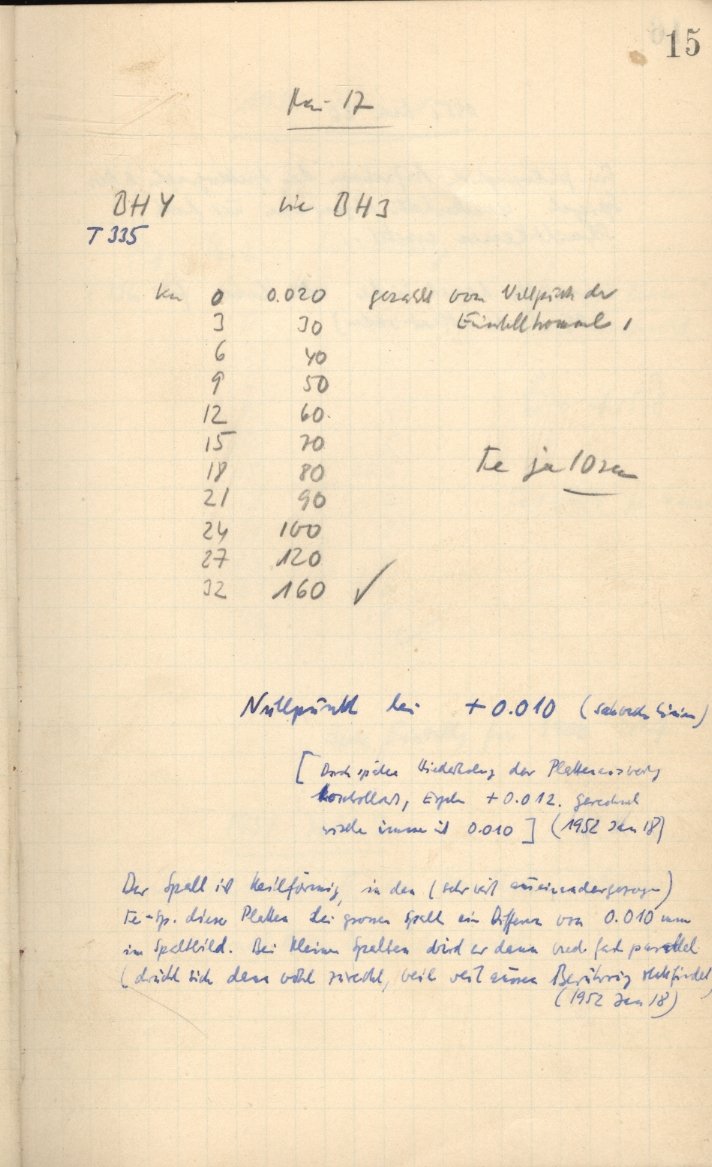 15
Mai 17
BH4 wie BH3
T 335
km 0 0.020 gezählt vom Nullpunkt der
3 30 Einstelltrommel
6 40
9 50
12 60
15 70
18 80
21 90
24 100
27 120
32 160 ✓
Fe je 10 sec
Nullpunkt bei +0.010 (schwache Linien)
[Durch spätere Wiederholung der Plattenauswertg
kontrolliert, Ergeb +0.012. gerechnet
immer mit 0.010] (1952 Jan 18)
Der Spalt ist keilförmig, in den (sehr weit auseinandergezogen)
Fe-Sp. dieser Platten bei grossem Spalt ein Differenz von 0.010 mm
im Spaltbild. Bei kleinen Spalten wird er dann fast parallel
(drückt sich dann wohl zurecht, weil weil aussen Berührung stattfindet)
(1952 Jan 18)